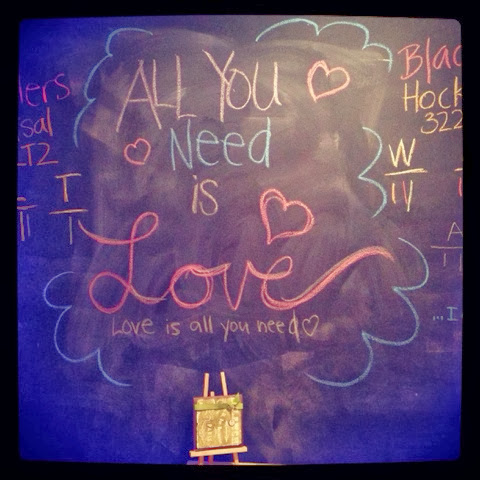 ALL YOU
Need
is
Love
Love is all you need
lers
sal
LT2
T
Blac
Hock
322
W
A
...I